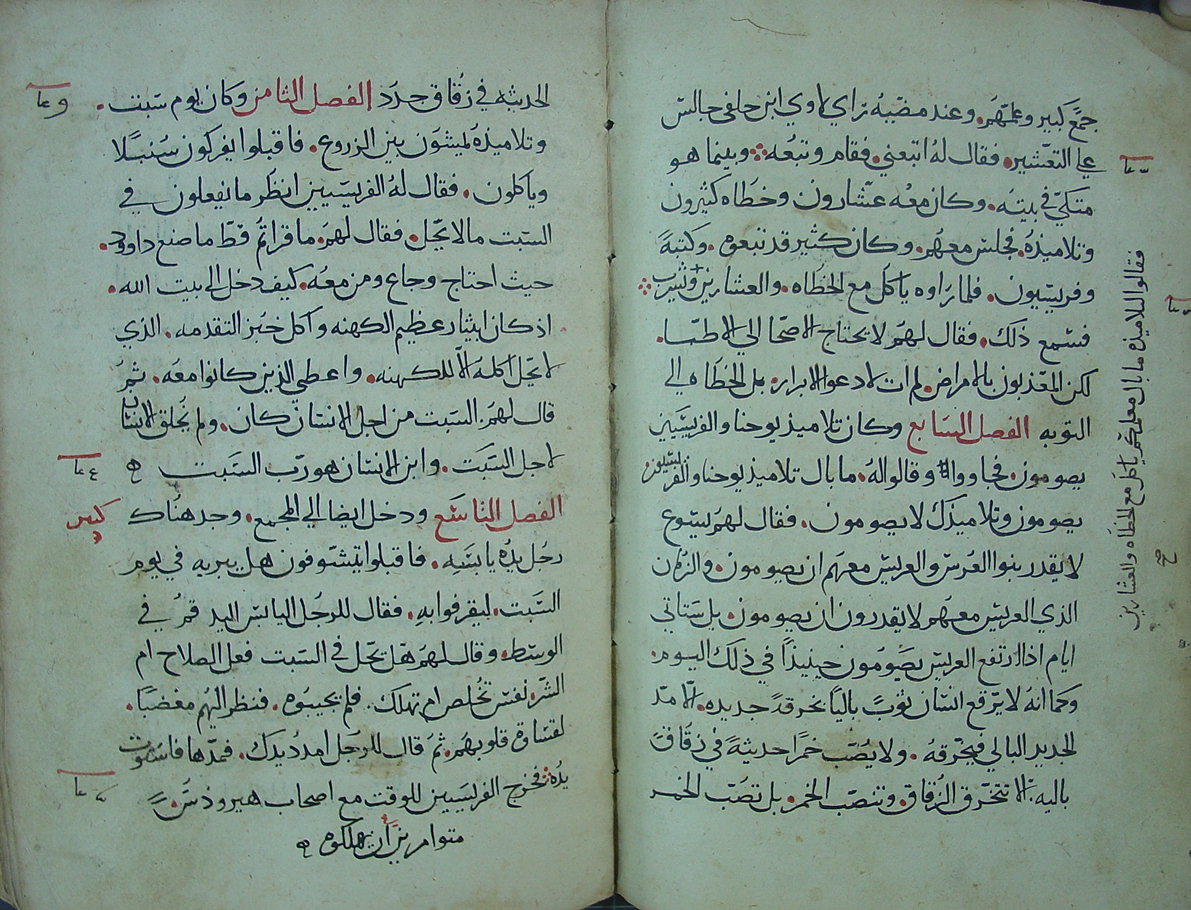 جمع كبير وعلمهم. وعند مضيه راى لاوي ابن حلفى جالس
علي التعشير. فقال له اتبعني. فقام وتبعه. وبينما هو
متكي في بيته. وكان معه عشارون وخطاه كثيرون
وتلاميذه. فجلس معهم. وكان كثير قد تبعوه. وكتبة
وفريسيون. فلما راوه ياكل مع الخطاه. والعشارين
فقالوا لتلاميذه ما بال معلمكم ياكل مع الخطاه والعشارين
فسمع ذلك. فقال لهم لا يحتاج الاصحا الي الاطبا.
لكن المعذبون بالامراض. لم ات لادعو الابرار. بل الخطاه الي
التوبه الفصل السابع وكان تلاميذ يوحنا والفريسيين
يصومون. فجاووا اليه وقالوا له. ما بال تلاميذ يوحنا والفريسيين
يصومون وتلاميذك لا يصومون. فقال لهم يسوع
لا يقدر بنوا العرس والعريس معهم ان يصومون. والزمان
الذي العريس معهم لا يقدرون ان يصومون. بل ستاتي
ايام اذا ارتفع العريس يصومون حينيذا في ذلك اليوم.
وكما انه لا يرقع انسان ثوبً بالياً بخرقة جديده. الا مد
الجديد البالي فيخرقه. ولا يصب خمرا حديثة في زقاق
باليه. الا تتخرق الزقاق. وتنصب الخمر. بل تصب الخمر
الحديثه في زقاق جدد الفصل الثامن وكان يوم سبت.
وتلاميذه يمشون بين الزروع. فاقبلوا يفركون سنبلا
وياكلون. فقال له الفريسيين انظر ما يفعلون في
السبت ما لا يحل. فقال لهم. ما قراتم قط ما صنع داوود.
حيث احتاج وجاع ومن معه. كيف دخل الى بيت الله.
اذ كان ابيثار عظيم الكهنه واكل خبز التقدمه. الذي
لا يحل اكله الا للكهنه. واعطي الذين كانوا معه. ثم
قال لهم. السبت من اجل الانسان كان. ولم يخلق الانسان
لاجل السبت. وابن الانسان هو رب السبت
الفصل التاسع ودخل ايضا الي المجمع. وجد هناك
رجل يده يابسه. فاقبلوا يتشوفون هل يبريه في يوم
السبت. ليقرفوا به. فقال للرجل اليابس اليد قم في
الوسط. وقال لهم هل يحل في السبت فعل الصلاح ام
الشر. نفس تخلص ام تهلك. فلم يجيبوه. فنظر اليهم مغضبا.
لقساوة قلوبهم. ثم قال للرجل امدد يدك. فمدها فاستوت
يده. فخرج الفريسيين للوقت مع اصحاب هيرودس
متوامرين ان يهلكوه